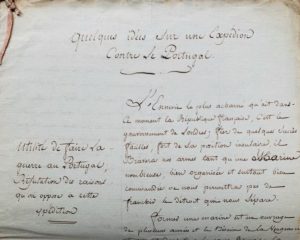 Quelques idées sur une Expédition
Contre le Portugal.
Utilité de faire la
guerre au Portugal,
Réfutation des raisons
qu'on oppose à cette
expédition
L'Ennemi le plus acharné qu'ait dans
ce moment la République française, c'est le
gouvernement de Londres, fier de quelques succès
faciles, fort de la position insulaire
nos armes tant qu'une Marine
nombreuse, bien organisée et surtout bien
commandée ne nous permettra pas de
franchir le détroit qui nous sépare.
Former une marine est un ouvrage
de plusieurs années et le Besoin de la